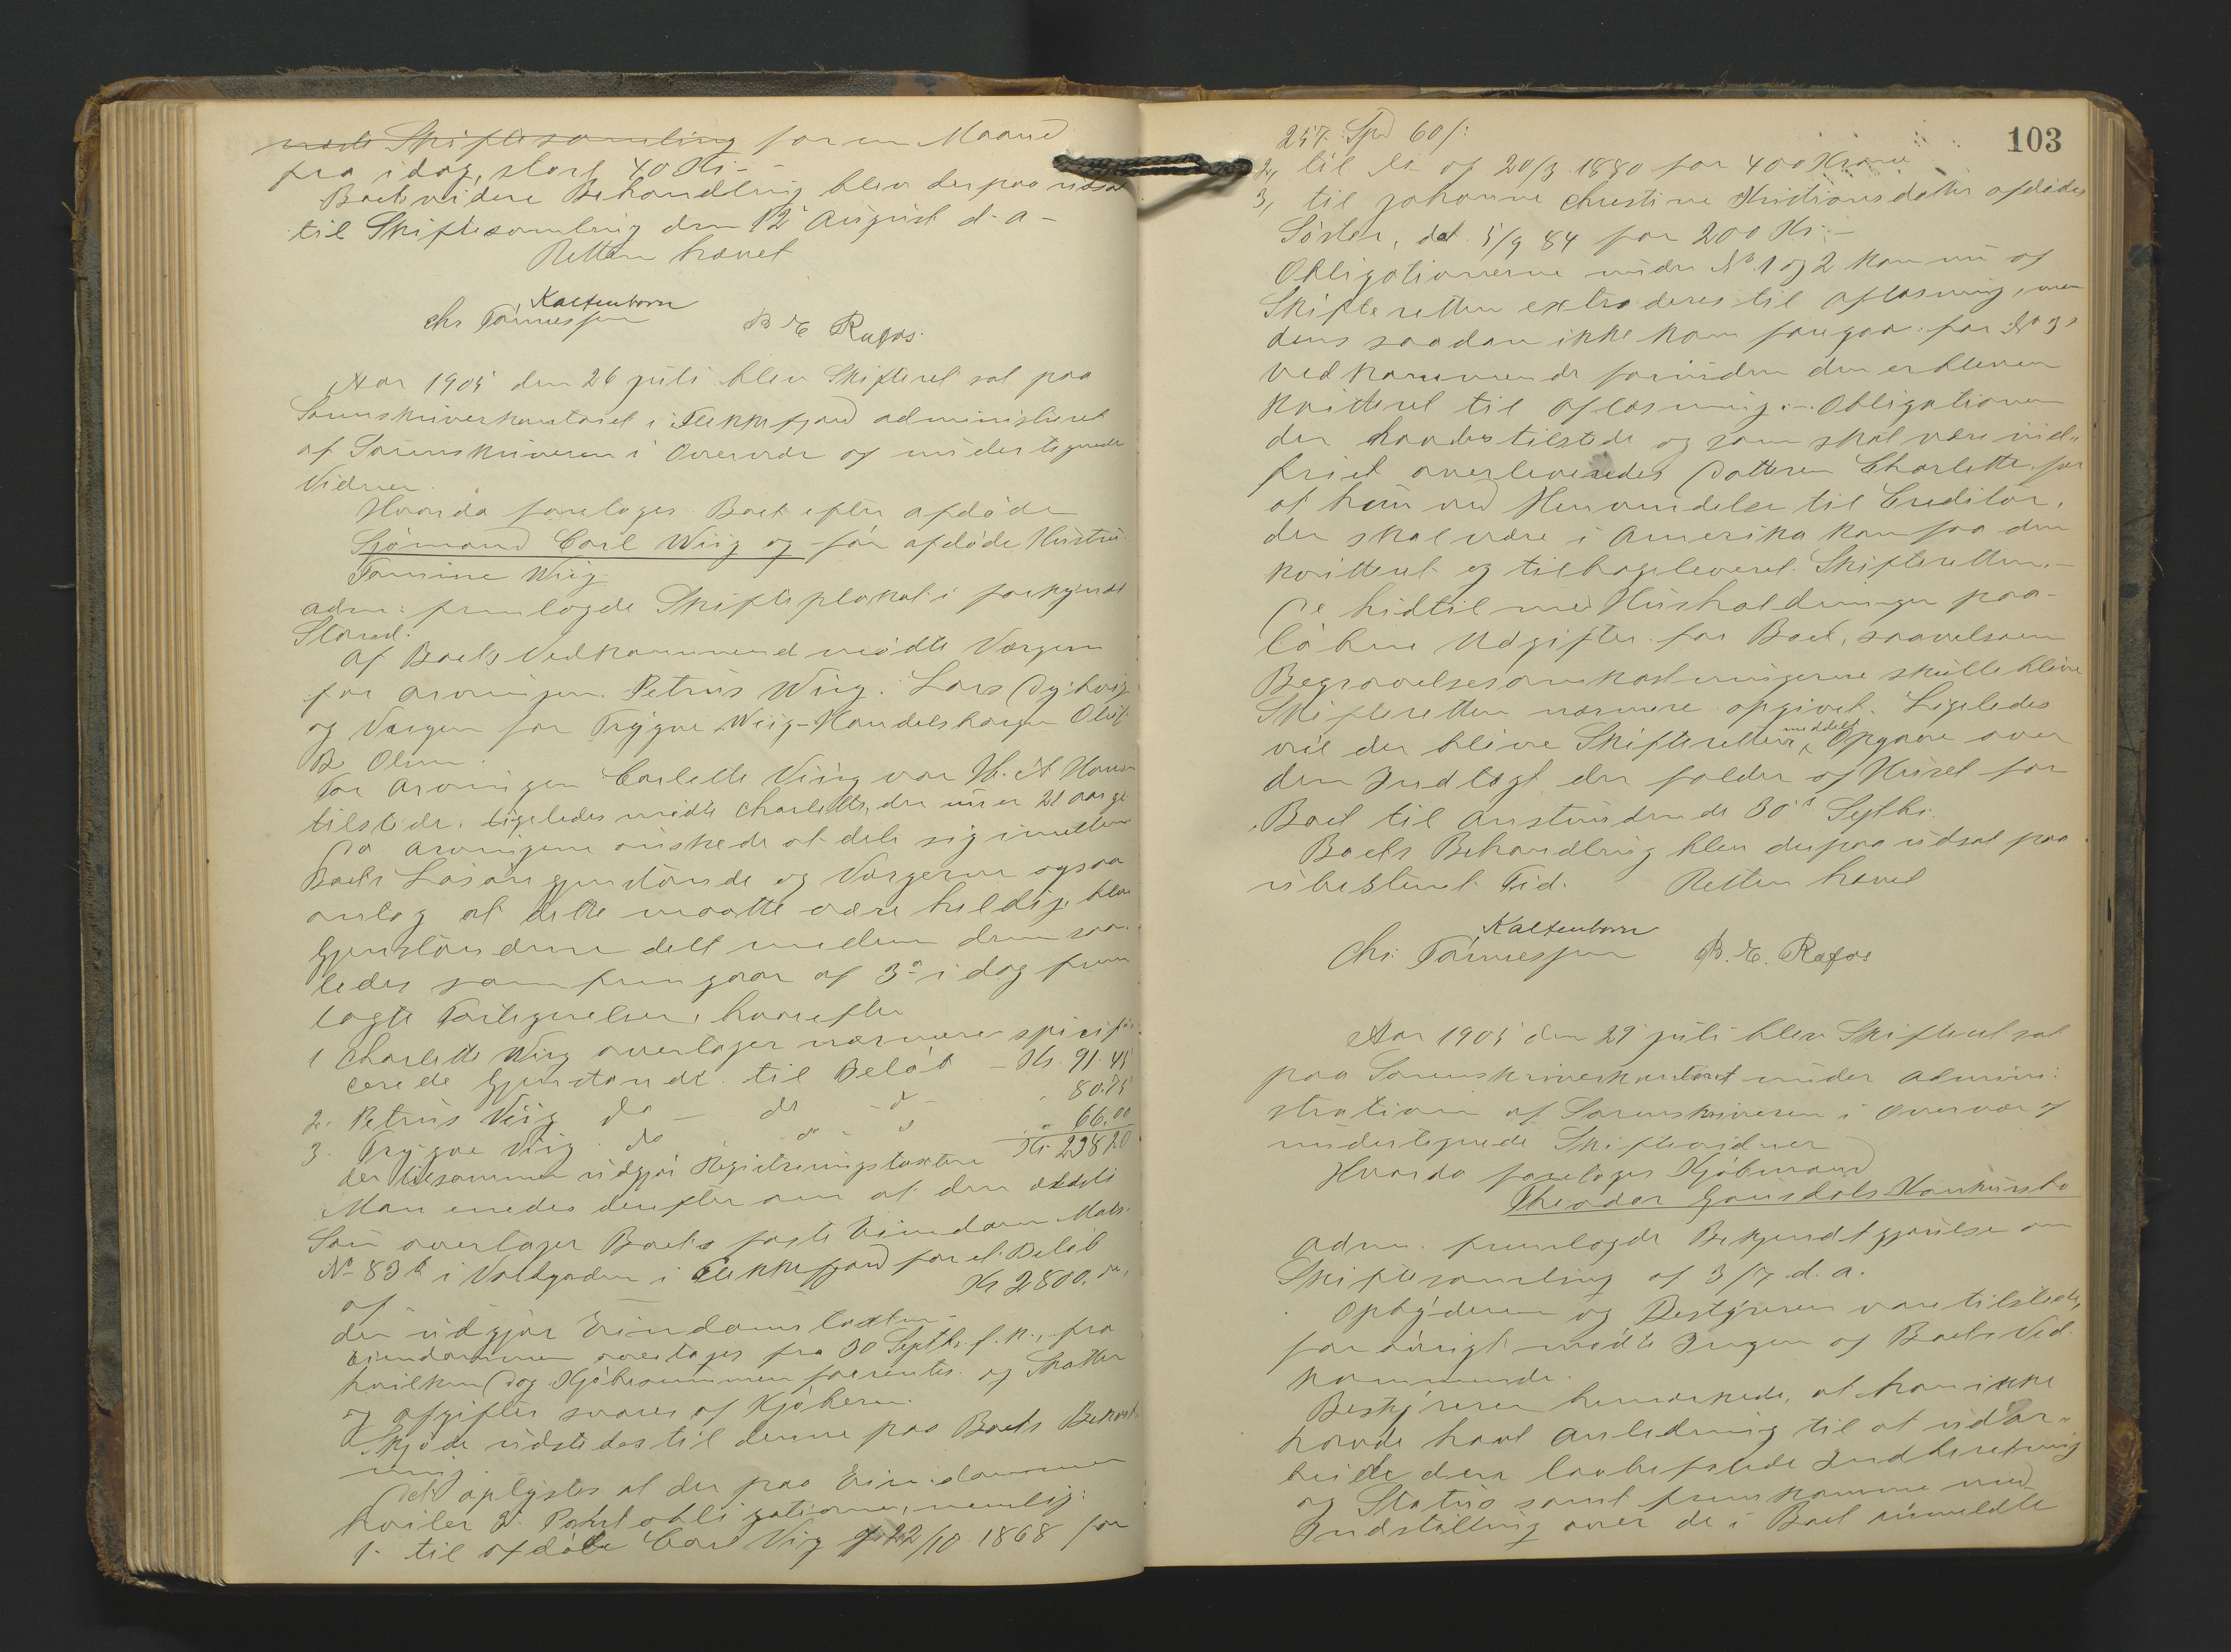 Skiftesamling for en Maaned
fra idag, stort 40 Kr -
Boets videre Behandling blev derpaa udsat
til Skiftesamling den 12te August d. a -
Retten hævet
Kaltenborn
Chr Tönnessen B. E. Rafos.
Aar 1905 den 26 juli blev Skifteret sat paa
Sorenskriverkontoret i Flekkefjord administreret
af Sorenskriveren i Overvær af undertegnede
Vidner.
Hvorda foretoges Boet efter afdöde
Sjömand Carl Wiig og før afdöde Hustru
Tomine Wiig
Adm: fremlagde Skifteplakat i forkyndt
Stand.
Af Boets Vedkommende mödte Værgen
for Arvingen Petrus Wiig. Lars Dyhvig
og Værgen for Trygve Wiig - Handelsborger Oluf
B Olsen.
For Arvingen Carlette Viig var H. A Hansen
tilstede. Ligeledes mödte Charlette, der nu er 21 aar gl.
Da Arvingerne önskede at dele sig imellem
Boets Lösöregjenstande og Værgerne ogsaa
antog at dette maatte være heldig, blev
Gjenstandene delt mellem dem saa-
ledes som fremgaar af 3de i dag frem
lagte Fortegnelser, hvorefter
1 Charlette Wiig overtager nærmere spicifi-
cerede Gjenstande til Beløb - Kr. 91.45
2. Petrus Viig do - do - d - " 80.75
3. Trygve Viig do " do - d " 66.00
der tilsammen udgjör Registreringstaxten Kr 238.20
Man enedes derefter om at den ældste
Sön overtager Boets faste Eiendom Matr.
No 83b i Voldgaden i Flekkefjord for et Beløb
af Kr 2800.00,
der udgjör Eiendomstaxten -
Eiendommen overtages fra 30 Septbr. f. k., fra
hvilken Dag Kjöbesummen forrentes og Skatter
og Afgifter svares af Kjöberen.
Skjöde udstedes til denne paa Boets Bekost-
ning.
Det oplystes at der paa Eiendommen
hviler 3. Pantobligationer, nemlig:
1. til afdöde Carl Viig af 22/10 1868 for
103
257. Spd 60 /:
2, til do af 20/3 1880 for 400 Kroner
3, til Johanne Christine Kristiansdatter afdödes
Söster, dat. 5/9 84 for 200 Kr. -
Obligationerne under No 1 og 2 kan nu af
Skifteretten extraderes til Aflæsning, me-
dens saadan ikke kan foregaa for No 3s
Vedkommende forinden den er bleven
kvitteret til Aflæsning. - Obligationen
der havdes tilstede og som skal være ind-
friet overleveredes Datteren Charlette, for
at hun ved Henvendelse til Creditor,
der skal være i Amerika kan faa den
kvitteret og tilbageleveret Skifteretten. -
De hidtil med Husholdningen paa-
löbne Udgifter for Boet, saavelsom
Begravelsesomkostningerne skulle blive
Skifteretten nærmere opgivet. Ligeledes
vil der blive Skifteretten meddelt Opgave over
den Indtægt der falder af Huset for
Boet til anstundende 30te Septbr.
Boets Behandling blev derpaa udsat paa
ubestemt Tid. Retten hævet
Kaltenborn
Chr. Tönnessen B. E. Rafos
Aar 1905 den 29 juli blev Skifteret sat
paa Sorenskriverkontoret under Admini-
stration af Sorenskriveren i Overvær af
undertegnede Skiftevidner
Hvorda foretoges Kjöbmand
Theodor Gausdals Konkursbo
Adm. fremlagde Bekjendtgjörelse om
Skiftesamling af 3/7 d. a.
Opbyderen og Bestyreren vare tilstede,
for övrigt mödte Ingen af Boets Ved-
kommende.
Bestyreren bemærkede, at han ikke
havde havt Anledning til at udar-
beide den lovbefalede Indberetning
og Status samt fremkomme med
Indstilling over de i Boet anmeldte